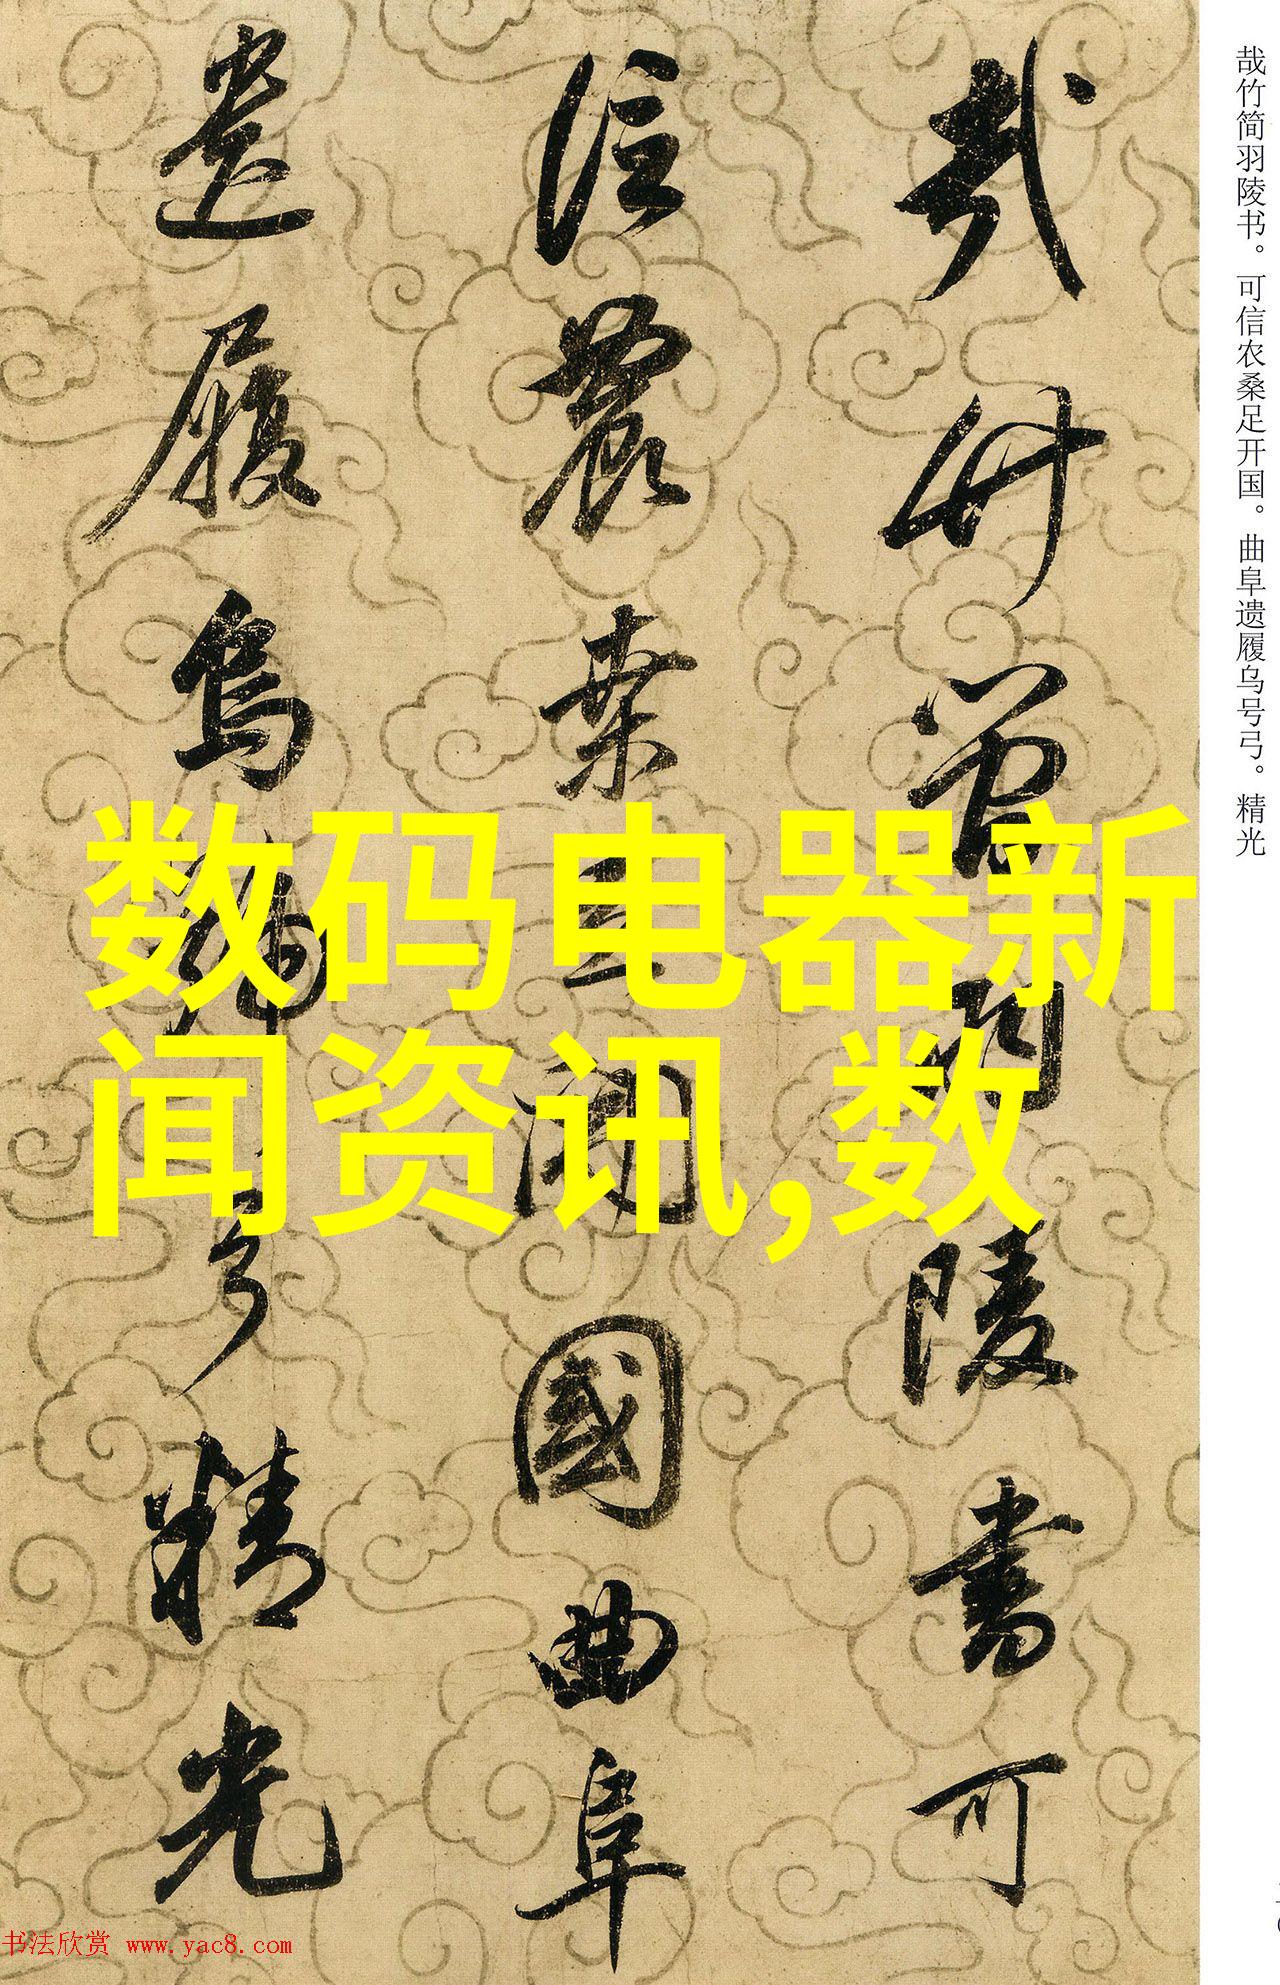 哉竹简羽陵书。可信农桑足开国。曲阜遗履乌号弓。精光
哉竹簡羽陵書可
信農桒足開國曲阜
遺履烏號弓精光
数码电器新
闻资讯,数
书法欣赏 www.yac8.com